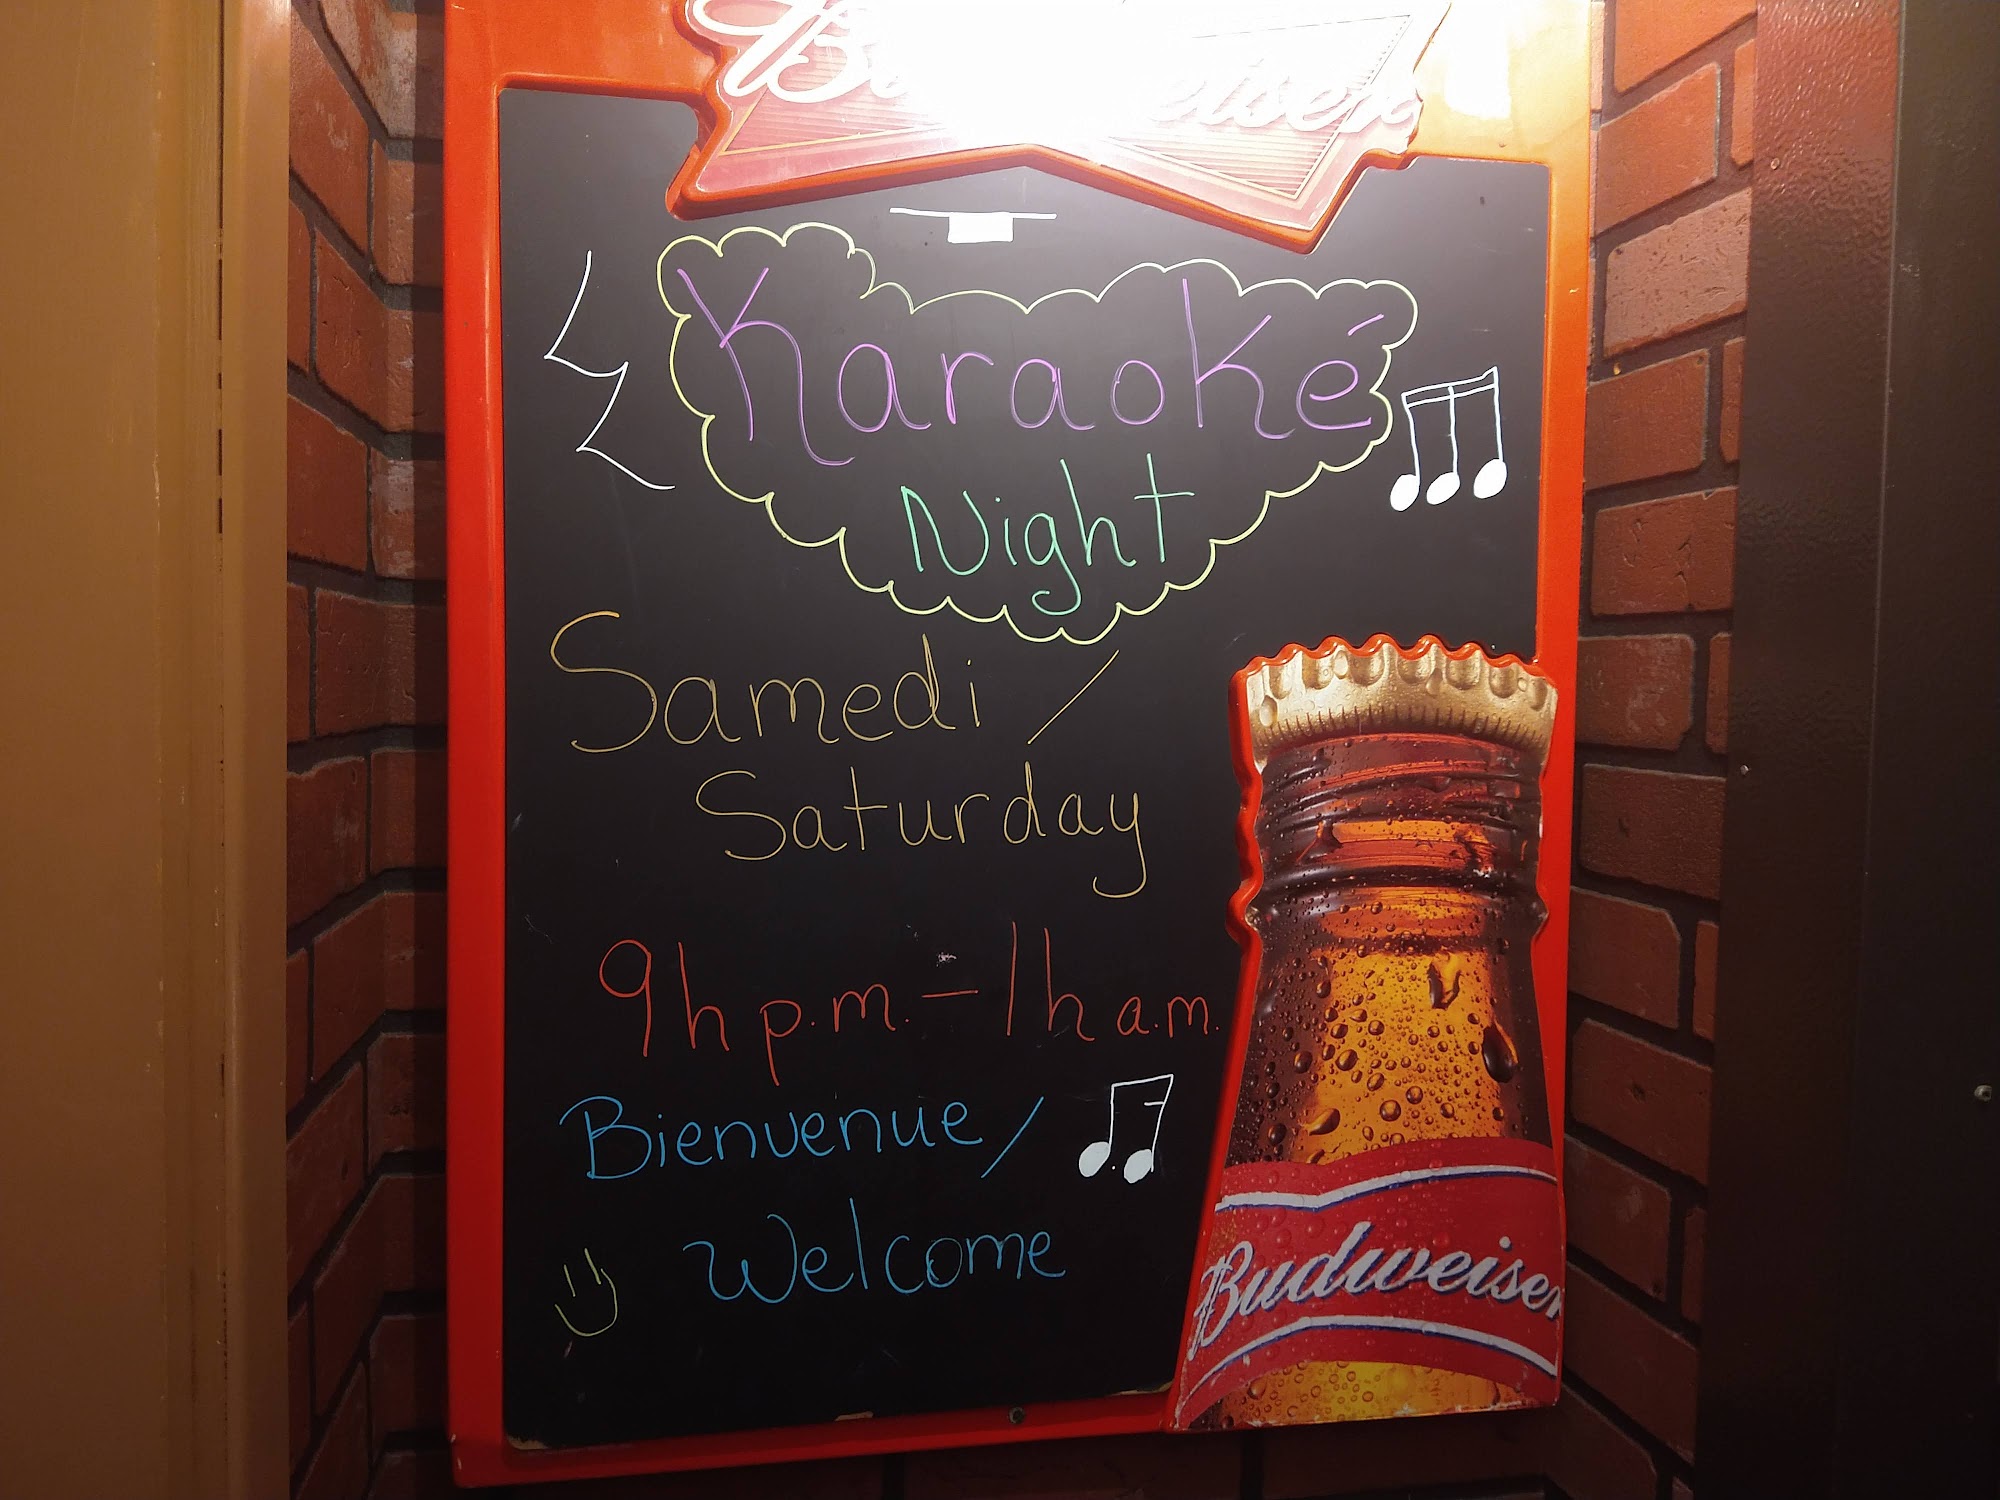 Budweiser
Karaoké
Night
Samedi /
Saturday
9h p.m. - 1h a.m.
Bienvenue /
Welcome
Budweiser